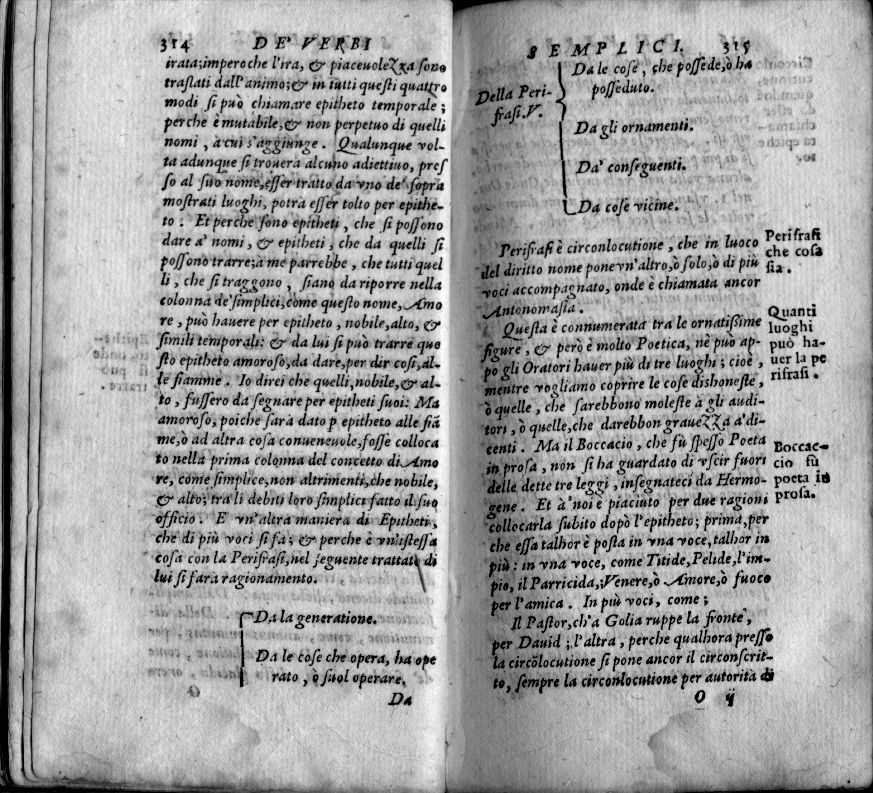 314 DE' VERBI
irata; imperoche l'ira, & piaceuolezza sono
traslati dall'animo; & in tutti questi quattro
modi si può chiamare epitheto temporale;
perche è mutabile, & non perpetuo di quelli
nomi, à cui s'aggiunge. Qualunque vol-
ta adunque si trouera alcuno adiettiuo, pres
so al suo nome, esser tratto da vno de' sopra
mostrati luoghi, potra esser tolto per epithe-
to. Et perche sono epitheti, che si possono
dare a' nomi, & epitheti, che da quelli si
possono trarre; a me parrebbe, che tutti quel
li, che si traggono, siano da riporre nella
colonna de' simplici, come questo nome, Amo
re, può hauere per epitheto, nobile, alto, &
simili temporali: & da lui si può trarre que
sto epitheto amoroso, da dare, per dir cosi, al-
le fiamme. Io direi che quelli, nobile, & al-
to, fussero da segnare per epitheti suoi: Ma
amoroso, poiche sarà dato p epitheto alle fiã
me, ò ad altra cosa conueneuole, fosse colloca
to nella prima colonna del concetto di Amo
re, come simplice, non altrimenti, che nobile,
& alto; tra li debiti loro simplici fatto il suo
officio. E vn'altra maniera di Epitheti,
che di più voci si fa; & perche è vn'istessa
cosa con la Perifrasi, nel seguente trattato di
lui si fara ragionamento.
Da la generatione.
Da le cose che opera, ha ope
rato, ò suol operare.
Da
SEMPLICI. 315
Della Peri-
frasi. V.
Da le cose, che possede, ò ha
posseduto.
Da gli ornamenti.
Da' conseguenti.
Da cose vicine.
Perifrasi è circonlocutione, che in luoco
del diritto nome pone vn'altro, ò solo, ò di più
voci accompagnato, onde è chiamata ancor
Antonomasia.
Perifrasi
che cosa
sia.
Questa è connumerata tra le ornatissime
figure, & però è molto Poetica, nè può ap-
po gli Oratori hauer più di tre luoghi; cioè,
mentre vogliamo coprire le cose dishoneste,
ò quelle, che sarebbono moleste à gli audi-
tori, ò quelle, che darebbon grauezza a' di-
centi. Ma il Boccacio, che fù spesso Poeta
in prosa, non si ha guardato di vscir fuori
delle dette tre leggi, insegnateci da Hermo-
gene. Et a' noi è piaciuto per due ragioni
collocarla subito dopò l'epitheto; prima, per
che essa talhor è posta in vna voce, talhor in
più: in vna voce, come Titide, Pelide, l'im-
pio, il Parricida, Venere, ò Amore, ò fuoco
per l'amica. In più voci, come;
Quanti
luoghi
può ha-
uer la pe
rifrasi.
Boccac-
cio fù
poeta in
prosa.
Il Pastor, ch'a Golia ruppe la fronte,
per Dauid; l'altra, perche qualhora presso
la circõlocutione si pone ancor il circonscrit-
to, sempre la circonlocutione per autorità di
O ij